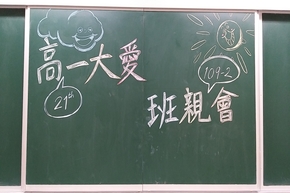 高一大愛
21th
109-2
班親會